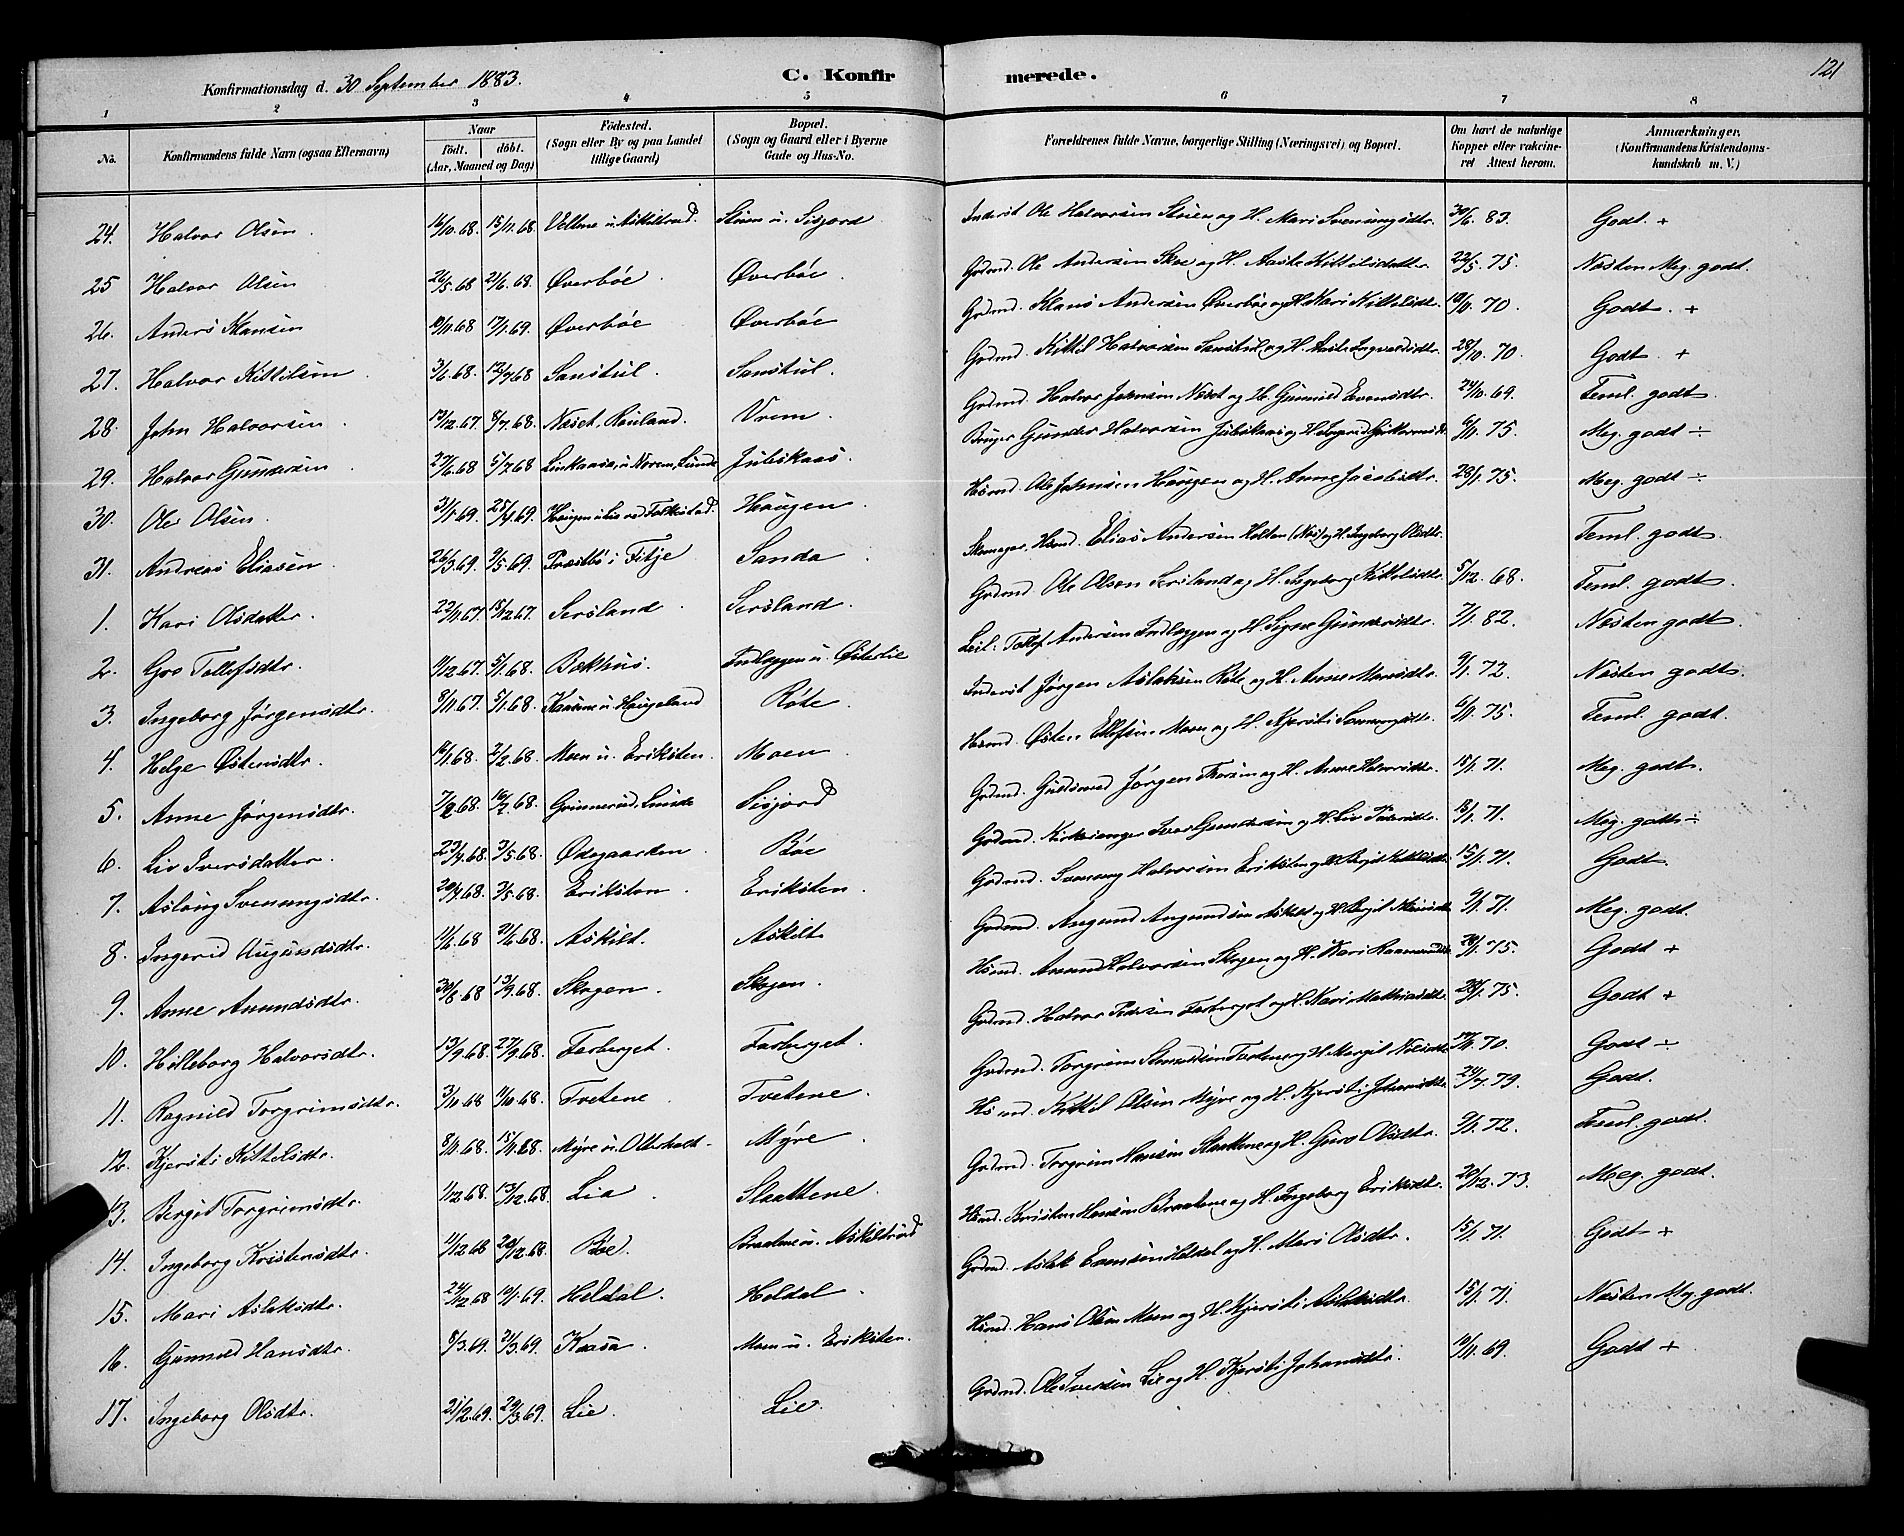 Konfirmationsdag d. 30 September 1883.
C. Konfirmerede.
121
1 2 3 4 5 6 7 8
No. Konfirmandens fulde Navn (ogsaa Efternavn) Naar Födt. döbt. (Aar, Maaned og Dag) Födested. (Sogn eller By og paa Landet tillige Gaard) Bopæl. (Sogn og Gaard eller i Byerne Gade og Hus-No. Forældrenes fulde Navne, borgerlige Stilling (Næringsvei) og Bopæl. Om havt de naturlige Kopper eller vakcineret Attest herom. Anmærkninger. (Konfirmandens Kristendomskundskab m. V.)
24. Halvor Olsen 16/10.68 15/11.68 Inderst Ole Halvorsen Stuen og H. Mari Svenungsdtr. 30/6 83. Godt. +
25 Halvor Olsen 26/5.68 21/6.68. Øverbøe Øverbøe Grdmd. Ole Andersen Skoe og H. Aaste Kittelsdatter 22/5 75. Næsten Meg. godt.
26. Anders Klausen 10/11.68 17/1.69. Øverbøe Øverbøe Grdmd. Klaus Andersen Øverbøe og H. Kari Kittelsdtr. 70. Godt. +
27. Halvor Kittilsen 3/6.68. 12/7.68 Sanstul. Sanstul. Grdmd. Kittil Halvorsen Sanstul og H. Aaste Ingvaldsdtr. 28/10 70. Godt. +
28. John Halvorsen 13/12.67. 8/7.68. Næset, Rauland. Vrem. Grdmd. Halvor Johnsen Næset og H. Gunnild Evensdtr. 24/10 69. Teml. godt.
29. Halvor Gundersen 27/6.68 5/7.68 Lunde Juliskaas. Bruger Gunder Halvorsen Juliskaas og H. 6/11. 75. Meg. godt ÷
30. Ole Olsen. 31/1.69 25/4.69. Haugen Haugen Hsmd. Ole Johnsen Haugen og H. Anne Jacobsdtr. 28/1. 75. Meg. godt ÷
31. Andreas Eliasen 26/3.69 9/5.69. Præstbø i Fitje Sanda Skomager, Hsmd. Elias Andersen Holten (Næs) og H. Ingeborg Olsdtr. Teml. godt.
1. Kari Olsdatter 22/11.67. 15/12.67. Sersland Sersland. Grdmd. Ole Olsen Sersland og H. Ingeborg Kittelsdtr. 5/12. 68. Teml. godt.
2. Gro Tollefsdtr. 11/12.67. 5/1.68. Bakhus. Indlæggen u. Østerlie Leil. Tollef Andersen Indlæggen og H. Signe Gundersdtr. 7/1. 82. Næsten godt.
3. Ingeborg Jørgensdtr. 8/11.67. 5/1.68. Haugeland Røte Inderst Jørgen Aslaksen Røte og H. Anne Hansdtr. 9/1. 72. Næsten godt.
4. Helge Østensdtr. 10/1.68. 2/2.68. Moen u. Eriksten. Moen Hsmd. Østen Ellefsen Moen og H. Kjersti 6/11. 75. Teml. godt.
5. Anne Jørgensdtr. 7/2.68. 16/2.68. Lunde Sisjord Grdmd. Guldsmed Jørgen og H. Anne Halvorsdtr. 15/1. 71. Meg. godt.
6. Liv Iversdatter 23/4.68. 3/5.68. Ødegaarden Bøe Grdmd. Kirkesanger Iver Gundersen og H. Liv 18/1. 71. Meg. godt ÷
7. Aslaug Svenungsdtr. 20/4.68. 3/5.68. Eriksten Eriksten. Grdmd. Svenung Halvorsen Eriksten og H. Bergit 15/1. 71. Godt.
8. Ingerid Augundsdtr. 11/6.68 21/6.68. Askilt. Askilt Grdmd. Augund Augundsen Askilt og H. Bergit 9/1. 71. Meg. godt.
9. Anne Amundsdtr. 30/8.68 13/9.68. Skogen. Skogen. Hsmd. Amund Halvorsen Skogen og H. Kari 75. Godt +
10. Hilleborg Halvorsdtr. 13/9.68. 27/9.68. Farberget. Farberget. Grdmd. Halvor Pedersen Farberget og H. Mari Mathiasdtr. 28/1. 75. Godt +
11. Ragnild Torgrimsdtr. 3/10.68 11/10.68. Tvetene Tvetene Grdmd. Torgrim Tvetene og H. Margit 70. Godt ÷
12. Kjersti Kittelsdtr. 8/11.68. 15/11.68. Myre u. Otterholt Myre Hsmd. Kittil Olsen Myre og H. Kjersti Johannesdtr. 24/7. 79. Godt.
13. Bergit Torgrimsdtr. 1/12.68. 13/12.68. Lia Slaattene. Grdmd. Torgrim Hansen Slaattene og H. Guro Olsdtr. 9/1. 72. Teml. godt.
14. Ingeborg Kristensdtr. 1/12.68 20/12.68. Bøe Braatene u. Askiltrud Hsmd. Kristen Hansen Braatene og H. Ingeborg Eriksdtr. 20/12. 73. Meg. godt.
15. Mari Aslaksdtr. 24/12.68 10/1.69. Heldal. Heldal. Grdmd. Aslak Evensen Heldal og H. Mari Olsdtr. 15/1. 71. Godt +
16. Gunnild Hansdtr. 8/3.69. 21/3.69. Kaasa Moen u. Eriksten. Hsmd. Hans Olsen Moen og H. Kjersti Aslaksdtr. 15/1. 71. Næsten Meg. godt.
17. Ingeborg Olsdtr. 21/2.69. 29/3.69. Lie. Lie. Grdmd. Ole Iversen Lie og H. Kjersti Johansdtr. 10/11. 69. Godt +